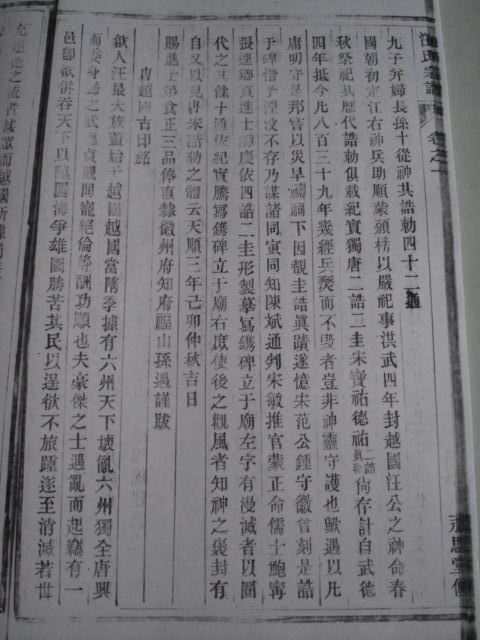 汪氏宗譜
卷之一
九子弁婦長孫十從神其誥勅四十二通
國朝初定江右神兵助順蒙頒榜以嚴祀事洪武四年封越國汪公之神命春
秋祭祀其歷代誥勅俱載紀實獨唐二誥二圭宋寶祐德祐二誥眞蹟尙存計自武德
四年抵今凡八百三十九年幾經兵燹而不毁者豈非神靈守護也歟遇以凡
庸明守是邦嘗以災旱禱祠下因覩圭誥眞蹟遂憶宋范公鍾守徽嘗刻是誥
于碑當予湮沒不存乃謀諸同寅同知陳斌通判宋敏推官蒙正命儒士鮑寧
張遜鄉貢進士 慶依四誥二圭形製摹冩鐫碑立于廟左字有漫滅者以圈
代之其餘十通依紀實騰冩鐫碑立于廟右庶使後之觀風者知神之褒封有
自又以見唐宋誥勅之體云天順三年己卯仲秋吉日
賜進士第食正三品俸直隸徽州府知府福山孫遇謹跋
唐越國古印銘
歙人汪最大族蓋始于越國越國當隋季據有六州天下壞亂六州獨全唐興
而委身爲之武德實觀間寵絕倫等酬功順也夫豪傑之士遇亂而起竊有一
邑卽欲倂吞天下以臨四海爭雄圖勝苦其民以逞欲不旅踵遂至消滅若丗